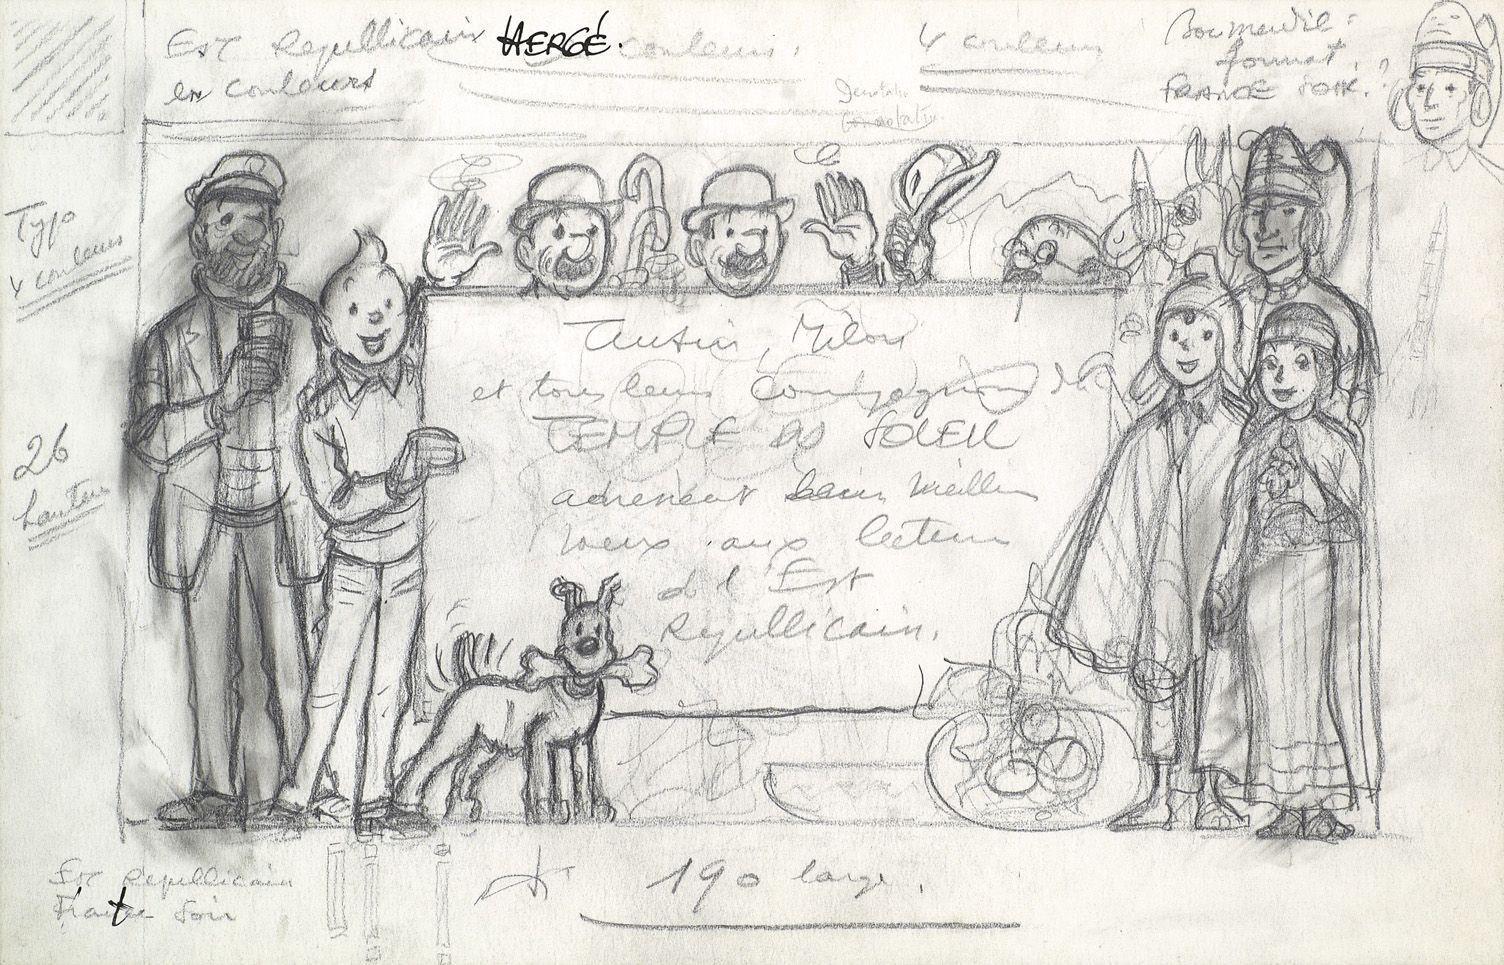 Est Republicain HERGÉ. couleurs.
en couleurs
4 couleurs
format.
FRANCE SOIR.
Typo
4 couleurs
26
hauteur
Tintin, Milou
et tous leurs compagnons du
TEMPLE DU SOLEIL
adressent leurs meilleurs
voeux aux lecteurs
de l'Est
Republicain.
190 large.
Est Republicain
France Soir